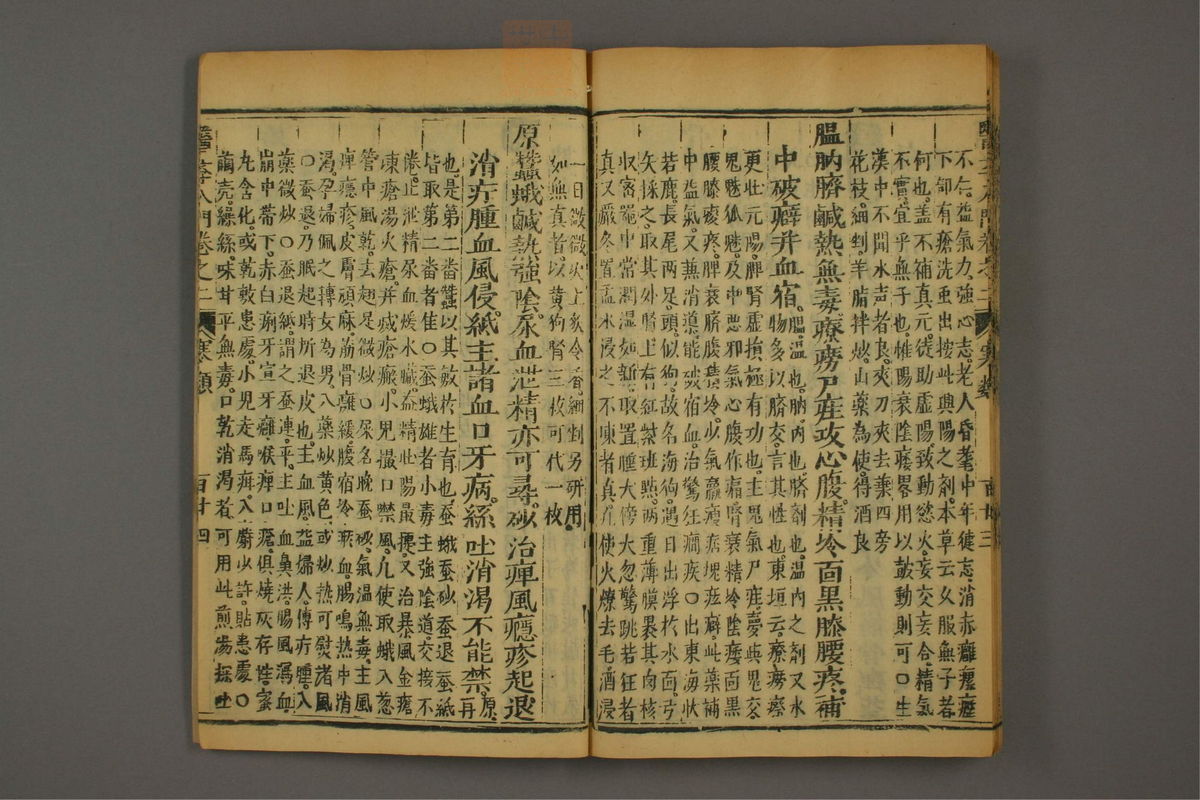 醫學入門卷之二 寒類 百廿三
不仁益氣力強心志老人昏耄中年健忘消赤癰
下部有瘡洗虫出按此興陽之劑本草云久服無子者
何也盖不補真元徒助虛陽致動慾火妄交妄合精氣
不實宜乎無子也惟陽衰陰痿畧用以鼓動則可〇生
漢中不聞水声者良夾刀夾去葉四旁
花枝細剉羊脂拌炒山藥為使得酒良
膃肭臍鹹熱無毒療癆尸疰攻心腹精冷面黑膝腰疼補
中破癖并血宿膃溫也肭內也臍劑也溫內之劑又水
物多以臍交言其性也東垣云療癆瘵
更壯元陽脾腎虛損極有功也主鬼氣尸疰夢與鬼交
鬼魅狐魅及中惡邪氣心腹作痛腎衰精冷陰痿面黑
腰膝痠疼脾衰臍腹積冷少氣羸瘦痞塊痃癖此藥補
中益氣又兼消導能破宿血治驚狂癇疾〇出東海狀
若鹿長尾兩足頭似狗故名海狗遇日出浮於水面弓
矢採之取其外腎上有紅紫斑點兩重薄膜裹其肉核
收密器中常潤湿如新取置睡犬傍犬忽驚跳若狂者
真又嚴冬置盂水浸之不凍者真凢使火燎去毛酒浸
一日微微火上炙令香細剉另研用
如無真者以黃狗腎三枚可代一枚
原蠶蛾鹹熱強陰尿血泄精亦可尋砂治痺風癮疹起退
治疔腫血風侵紙主諸血口牙病絲吐消渴不能禁原再
也是第二番蠶以其敏於生育也蚕蛾蚕砂蚕退蚕紙
皆取第二番者佳〇蚕蛾雄者小毒主強陰道交接不
倦止泄精尿血煖水臟益精壯陽最捷又治暴風金瘡
凍瘡湯火瘡并㓕瘡瘢小兒撮口禁風凢使取蛾入葱
管中風乾去翅足微炒〇尿名晚蚕砂氣溫無毒主風
痺癮疹皮膚頑麻筋骨癱緩腹宿冷瘀血腸鳴熱中消
渴孕婦佩之轉女為男入藥炒黃色或炒熱可熨諸風
〇蚕退乃眠起時所退皮也主血風益婦人傅疔腫入
藥微炒〇蚕退紙謂之蚕連平主吐血鼻洪腸風瀉血
崩中蒂下赤白痢牙宣牙癰喉痺口瘡俱燒灰存性蜜
丸含化或乾敷患處小兒走馬疳入麝少許貼患處〇
繭壳繰絲味甘平無毒口乾消渴者可用此煎湯探吐
醫學入門卷之二 寒類 百廿四